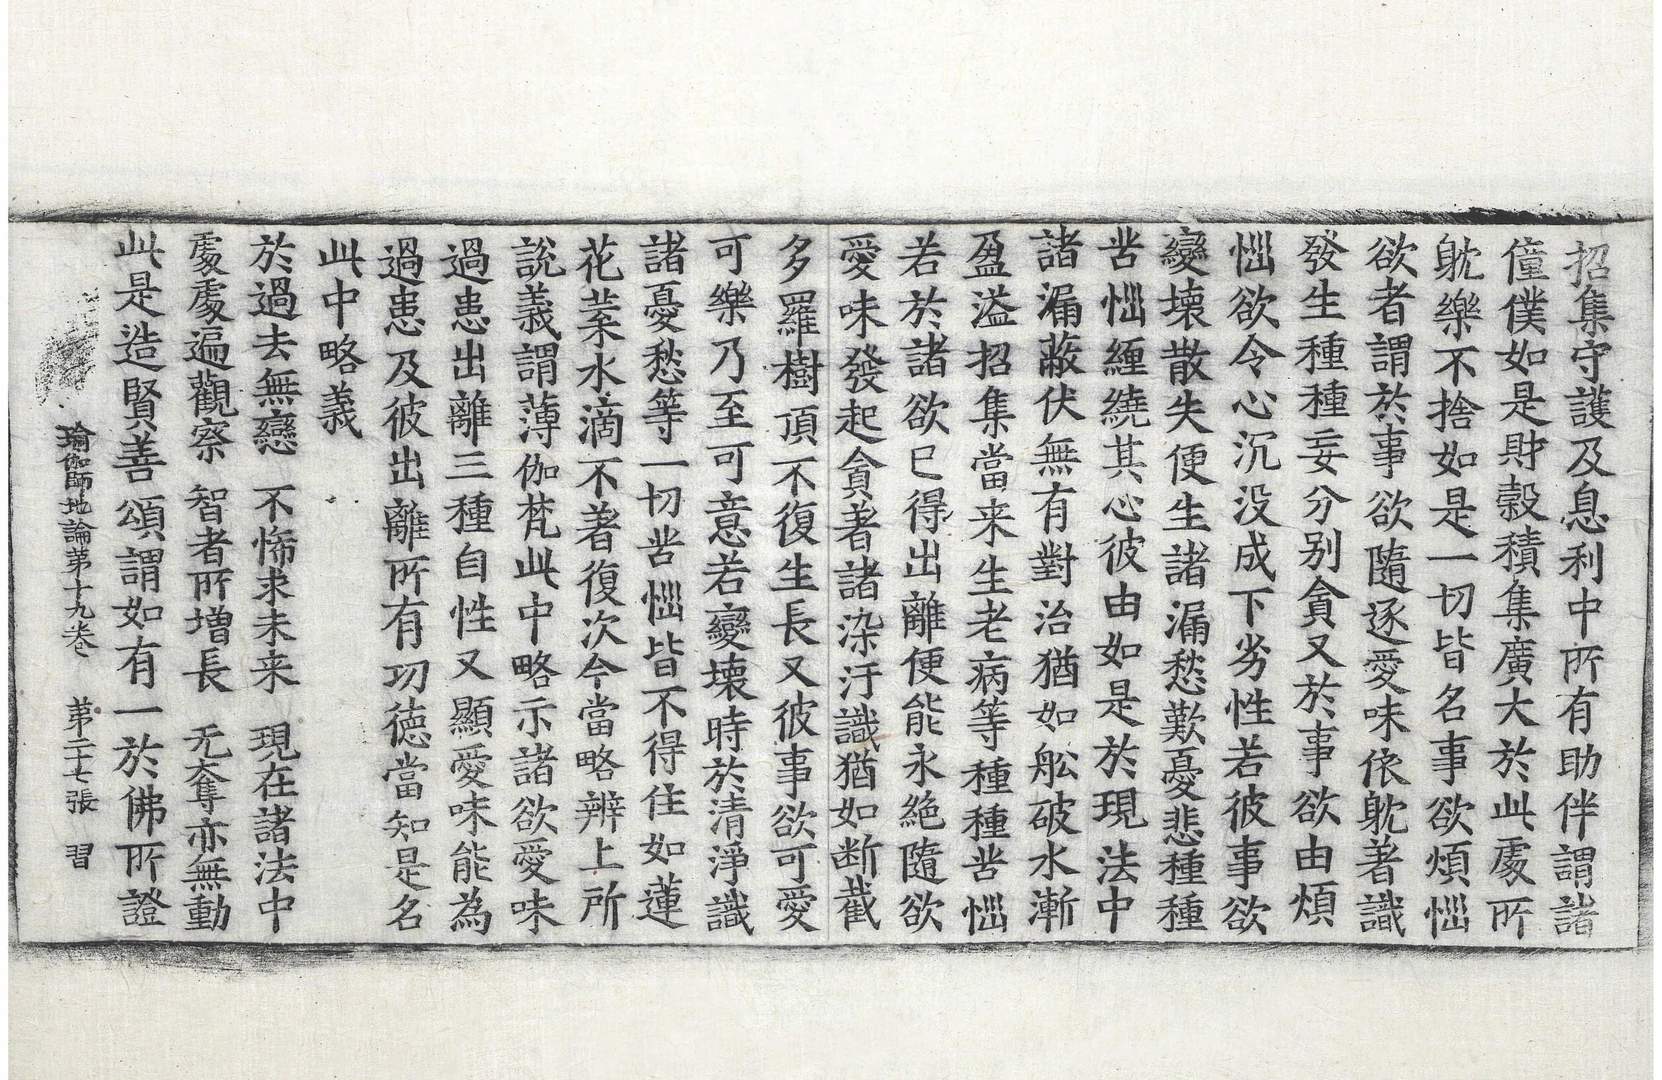 招集守護及息利中所有助伴謂諸
僮僕如是財穀積集廣大於此處所
躭樂不捨如是一切皆名事欲煩惱
欲者謂於事欲隨逐愛味依躭著識
發生種種妄分別貪又於事欲由煩
惱欲令心沉没成下劣性若彼事欲
變壞散失便生諸漏愁歎憂悲種種
苦惱纏繞其心彼由如是於現法中
諸漏蔽伏無有對治猶如舩破水漸
盈溢招集當来生老病等種種苦惱
若於諸欲已得出離便能永絶隨欲
愛味發起貪著諸染汙識猶如断截
多羅樹頂不復生長又彼事欲可愛
可樂乃至可意若變壞時於清淨識
諸憂愁等一切苦惱皆不得住如蓮
花葉水滴不著復次今當略辨上所
說義謂薄伽梵此中略示諸欲愛味
過患出離三種自性又顯愛味能為
過患及彼出離所有功徳當知是名
此中略義
於過去無戀 不悕求未来 現在諸法中
處處遍觀察 智者所増長 无奪亦無動
此是造賢善頌謂如有一於佛所證
瑜伽師地論第十九卷 第二十七張 習